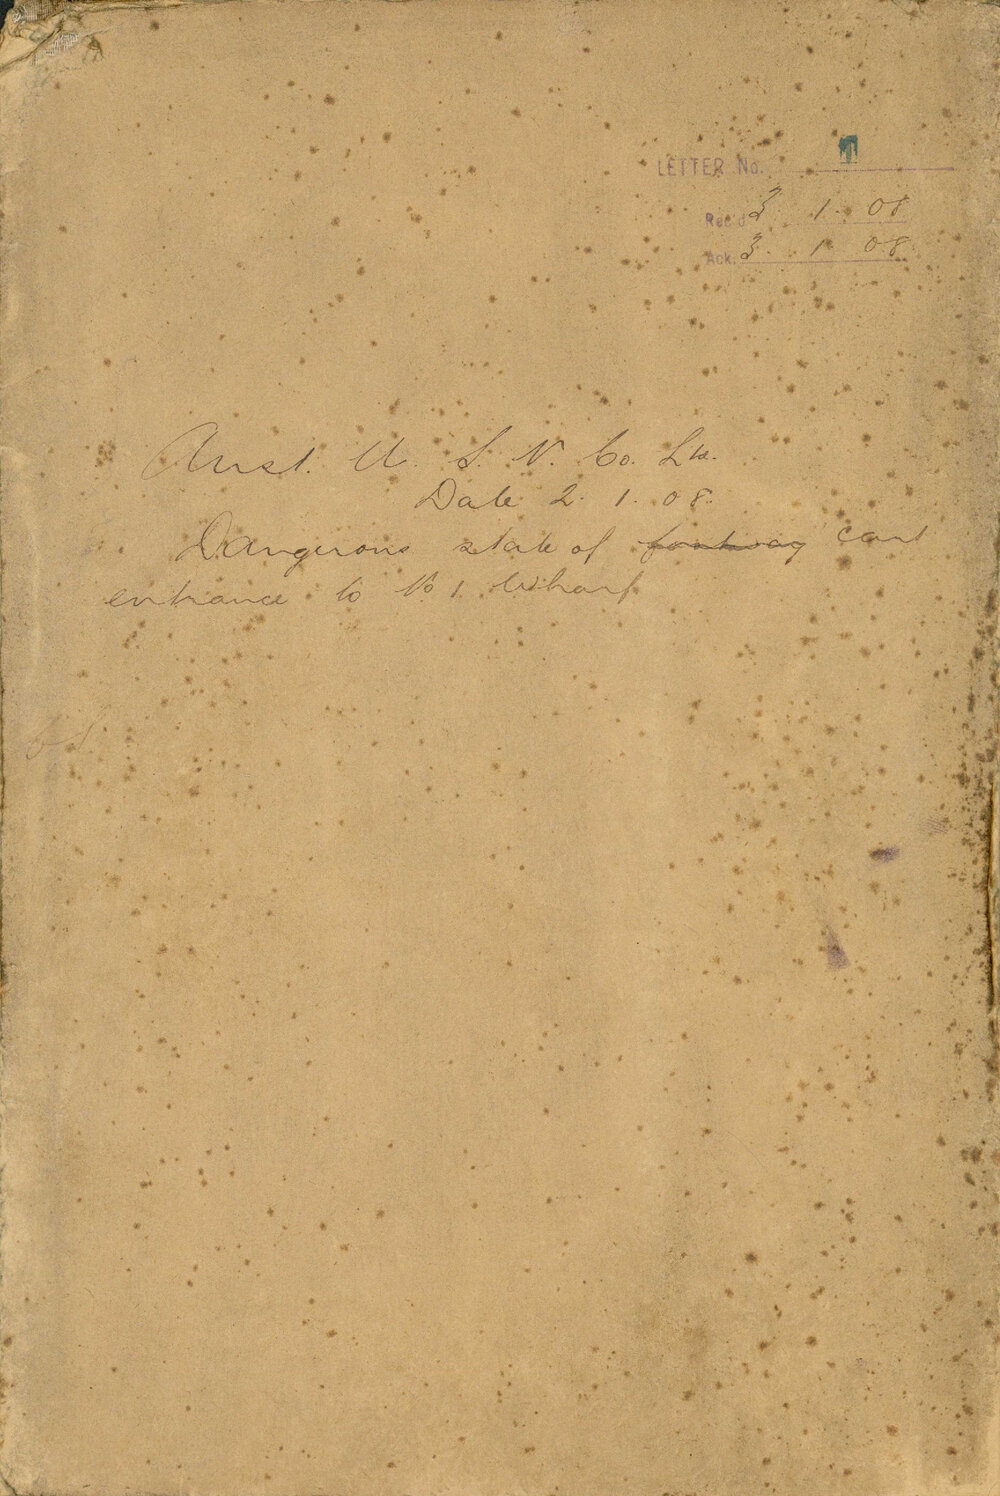 LETTER No. 1
Rec'd 3 1. 08
Ack. 3. 1 08.
Aust. U. S. N. Co. Ltd.
Date 2. 1. 08.
Dangerous state of footway cart
entrance to No 1. Wharf